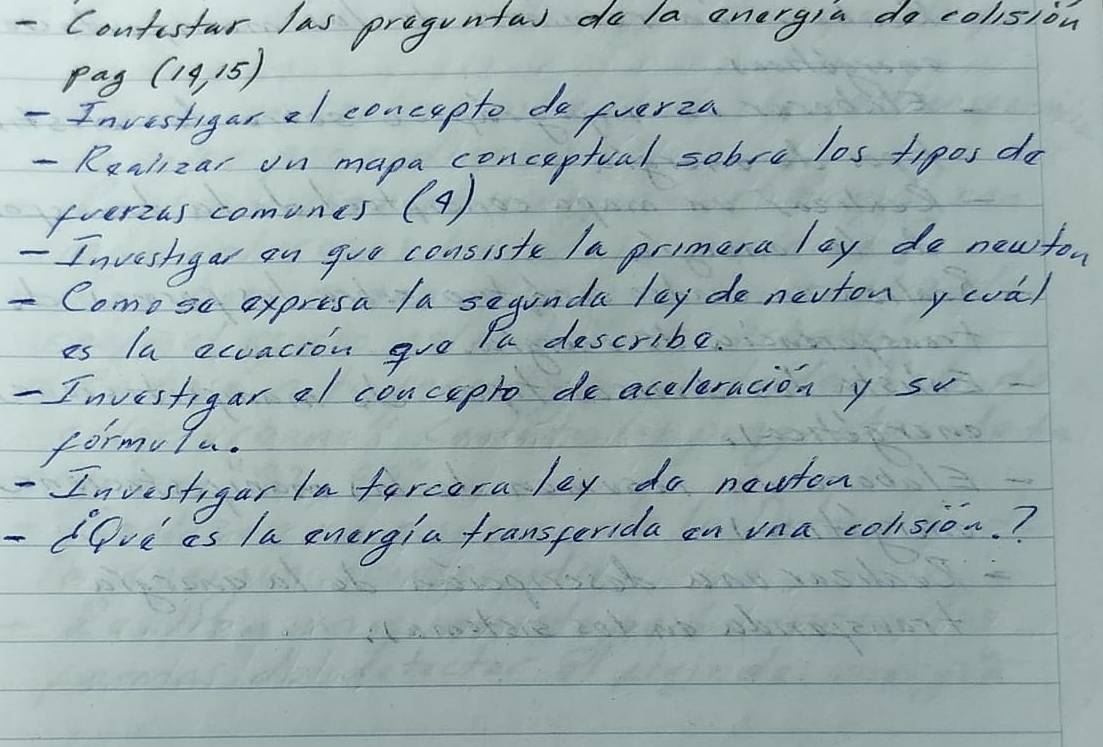 - Contestar las preguntas de la energía de colisión
pag (14,15)
- Investigar el concepto de fuerza
- Realizar un mapa conceptual sobre los tipos de
fuerzas comunes (4)
- Investigar en que consiste la primera ley de newton
- Como se expresa la segunda ley de neuton y cuál
es la ecuación que la describe.
- Investigar el concepto de aceleración y su
fórmula.
- Investigar la tercera ley de newton
- ¿Qué es la energía transferida en una colisión.?